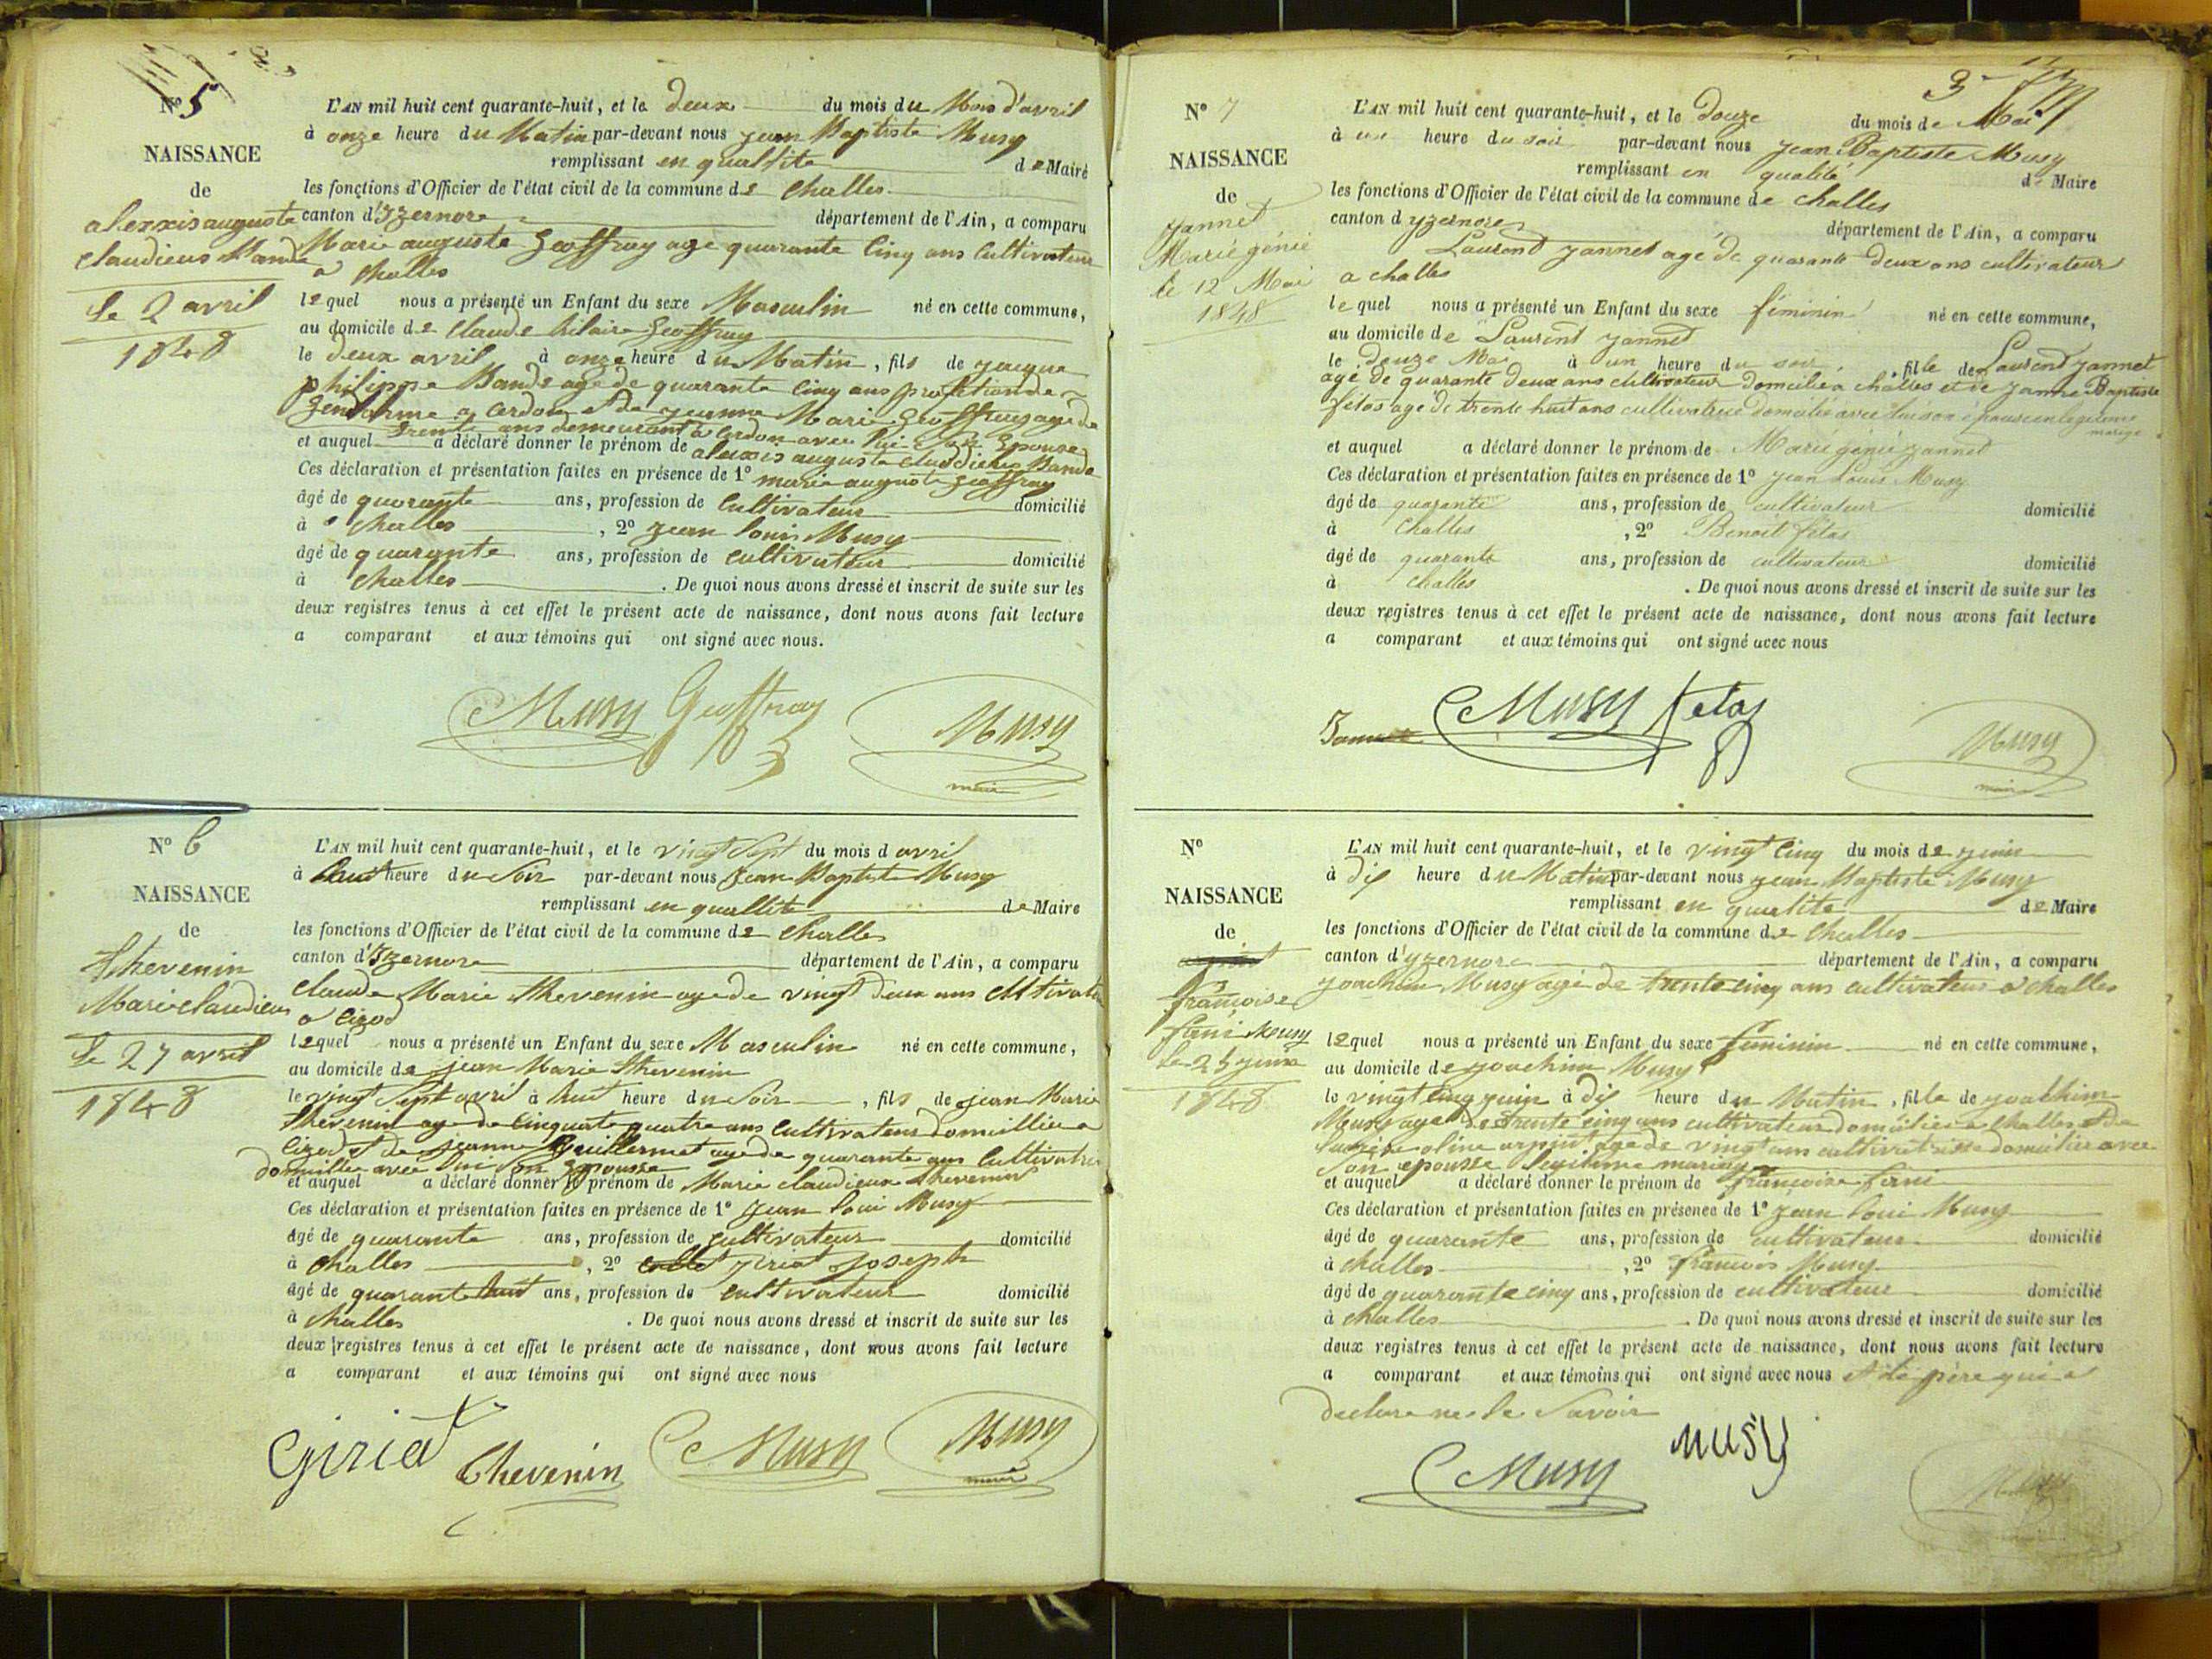 N° 5
NAISSANCE
de
alexxis auguste
claudieus Bande
le 2 avril
1848
L'AN mil huit cent quarante-huit, et le deux du mois du Mois d'avril
à onze heure du Matin par-devant nous jean Baptiste Musy
remplissant en quallite de Maire
les fonctions d'Officier de l'état civil de la commune de Challes
canton d'Yzernore département de l'Ain, a comparu
Marie auguste Geoffray age quarante Cinq ans Cultivateur
a Challes
lequel nous a présenté un Enfant du sexe Masculin né en cette commune,
au domicile de Claude hilaire Geoffray
le deux avril à onze heure du Matin, fils de jaque
philippe Bande age de quarante Cinq ans profetion de
Gendarme a Cerdon et de jeanne Marie Geoffray age de
trente ans demeurant a Cerdon avec lui Epouse
et auquel a déclaré donner le prénom de alexxis auguste claudieus Bande
Ces déclaration et présentation faites en présence de 1° marie auguste geoffray
âgé de quarante ans, profession de Cultivateur domicilié
à Challes, 2° jean louis Musy
âgé de quarante ans, profession de Cultivateur domicilié
à Challes. De quoi nous avons dressé et inscrit de suite sur les
deux registres tenus à cet effet le présent acte de naissance, dont nous avons fait lecture
a comparant et aux témoins qui ont signé avec nous.
Musy Geoffray Musy
maire
N° 6
NAISSANCE
de
Thevenin
Marie claudieus
le 27 avril
1848
L'AN mil huit cent quarante-huit, et le vingt Sept du mois d avril
à huit heure du Soir par-devant nous Jean Baptiste Musy
remplissant en quallite de Maire
les fonctions d'Officier de l'état civil de la commune de Challes
canton d'Yzernore département de l'Ain, a comparu
Claude Marie thevenin age de vingt deux ans Cltivate
a Cizod
lequel nous a présenté un Enfant du sexe Masculin né en cette commune,
au domicile de jean Marie thevenin
le vingt Sept avril à huit heure du Soir, fils de jean Marie
thevenin age de Cinquate quatre ans Cultivateur domicillier a
Cizod et de jeanne Guillermet age de quarante ans Cultivatri
domillie avec lui Son Epousse
et auquel a déclaré donner le prénom de Marie claudieus thevenin
Ces déclaration et présentation faites en présence de 1° Jean loui Musy
âgé de quarante ans, profession de Cultivateur domicilié
à Challes, 2° jiriat joseph
âgé de quarant huit ans, profession de Cultivateur domicilié
à Challes. De quoi nous avons dressé et inscrit de suite sur les
deux registres tenus à cet effet le présent acte de naissance, dont nous avons fait lecture
a comparant et aux témoins qui ont signé avec nous
Giriat Thevenin Musy Musy
maire
3
N° 7
NAISSANCE
de
Yannet
Marie génie
le 12 Mai
1848
L'AN mil huit cent quarante-huit, et le Douze du mois de Mai
à un heure du soir par-devant nous Jean Baptiste Musy
remplissant en qualité de Maire
les fonctions d'Officier de l'état civil de la commune de Challes
canton d yzernore département de l'Ain, a comparu
Laurent yannet agé de quarante deux ans cultivateur
a challes
lequel nous a présenté un Enfant du sexe féminin né en cette commune,
au domicile de Laurent yannet
le Douze Mai à un heure du soir, fille de Laurent yannet
agé de quarante deux ans cultivateur domicilié a challes et de janne Baptiste
fétas agé de trente huit ans cultivatrice domicilié avec lui son épouse en legitime
mariage
et auquel a déclaré donner le prénom de Marie génie yannet
Ces déclaration et présentation faites en présence de 1° Jean Louis Musy
âgé de quarante ans, profession de cultivateur domicilié
à Challes, 2° Benoit fétas
âgé de quarante ans, profession de cultivateur domicilié
à challes. De quoi nous avons dressé et inscrit de suite sur les
deux registres tenus à cet effet le présent acte de naissance, dont nous avons fait lecture
a comparant et aux témoins qui ont signé avec nous
Musy fetas Musy
maire
N°
NAISSANCE
de
françoise
fani Musy
le 25 juin
1848
L'AN mil huit cent quarante-huit, et le vingt Cinq du mois de juin
à dis heure du Matin par-devant nous jean Baptiste Musy
remplissant en qualite de Maire
les fonctions d'Officier de l'état civil de la commune de Challes
canton d'yzernore département de l'Ain, a comparu
joachim Musy agé de trente cinq ans cultivateur a challes
lequel nous a présenté un Enfant du sexe feminin né en cette commune,
au domicile de joachim Musy
le vingt Cinq juin à dis heure du Matin, fille de joachim
Musy age de trente cinq ans cultivateur domicilier a Challes et de
oline argent age de vingt ans cultivatrisse domicilier avec
Son epousse legitime mariag
et auquel a déclaré donner le prénom de françoise fani
Ces déclaration et présentation faites en présence de 1° jean loui Musy
âgé de quarante ans, profession de cultivateur domicilié
à challes, 2° francois Musy
âgé de quarante cinq ans, profession de cultivateur domicilié
à challes. De quoi nous avons dressé et inscrit de suite sur les
deux registres tenus à cet effet le présent acte de naissance, dont nous avons fait lecture
a comparant et aux témoins qui ont signé avec nous et le père qui a
declare ne le Savoir
Musy MUSY Musy